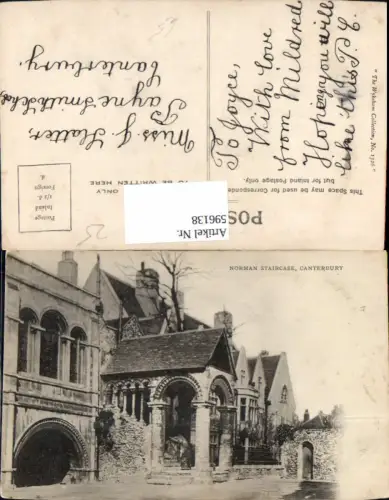 To Joyce,
With love
from Mildred
Hope you will
like this P.C.
Miss J Slatter
Payne Smith School
Canterbury.
"The Wykeham Collection, No. 1720"
This Space may be used for Correspondence
but for Inland Postage only.
POS
ONLY
TO BE WRITTEN HERE
Postage
Inland
1/2 d.
Foreign
d.
Artikel Nr.
596138
NORMAN STAIRCASE, CANTERBURY